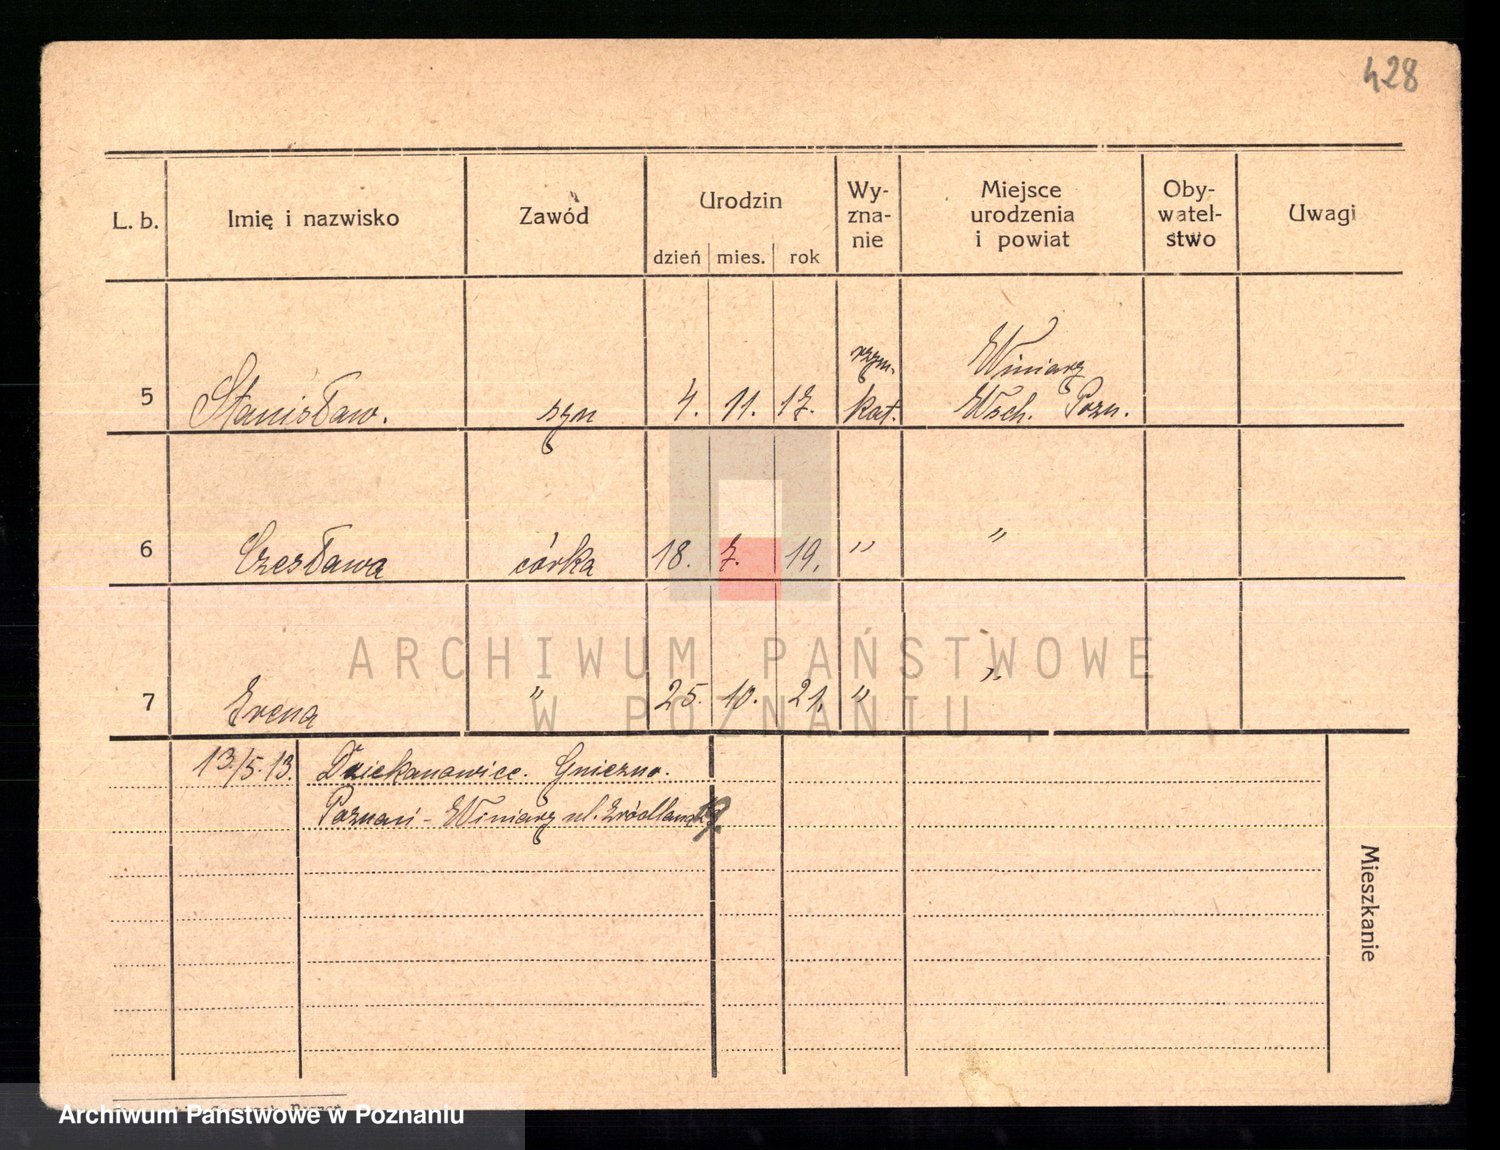 428
L. b.
Imię i nazwisko
Zawód
Urodzin
dzień mies. rok
Wy-
zna-
nie
Miejsce
urodzenia
i powiat
Oby-
watel-
stwo
Uwagi
5 Stanisław. syn 4. 11. 17. rzym. kat. Winiary
Wsch. Pozn.
6 Czesława córka 18. 7. 19. " "
7 Irena " 25. 10. 21. " "
13./5.13. Dziekanowice. Gniezno.
Poznań - Winiary ul.
Mieszkanie
ARCHIWUM PAŃSTWOWE
W POZNANIU
Archiwum Państwowe w Poznaniu